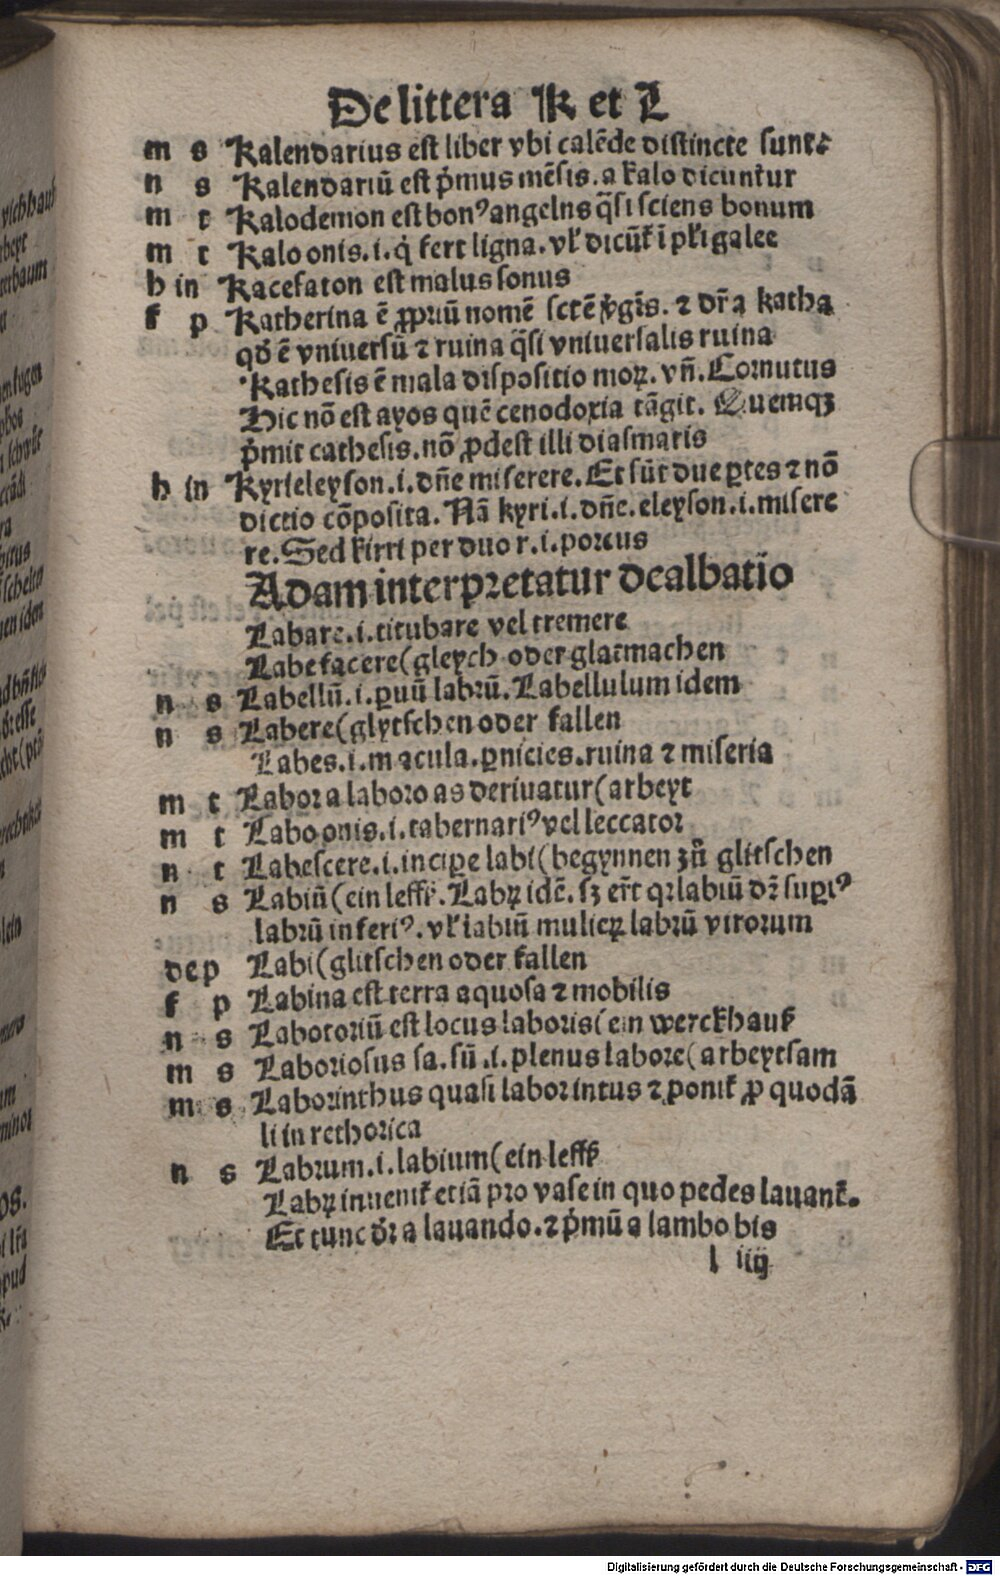 De littera K et L
m s Kalendarius est liber vbi calēde distincte sunt
n s Kalendariū est ṗmus mēsis. a kalo dicunt̄ur
m t Kalodemon est bonꝰ angelns q̄si sciens bonum
m t Kalo onis. i. q̇ fert ligna. vl̓ dicūt̄ ī pl̓i galee
h in Kacefaton est malus sonus
f p Katherina ē ꝓpriū nomē sctē v̓gīs. ⁊ dr̄ a katha
qđ ē vniuersū ⁊ ruina q̄si vniuersalis ruina
Kathesis ē mala dispositio moꝝ. vn̄. Cornutus
Hic nō est ayos quē cenodoxia tāgit. Quemqꝫ
ṗmit cathesis. nō ꝓdest illi diasmatis
h in Kyrieleyson. i. dn̄e miserere. Et sūt due ꝑtes ⁊ nō
dictio cōposita. Nā kyri. i. dn̄e. eleyson. i. misere
re. Sed kirri per duo r. i. porcus
Adam interpretatur dealbatio
Labare. i. titubare vel tremere
Labefacere (gleych oder glatmachen
n s Labellū. i. ꝑuū labrū. Labellulum idem
n s Labere (glytschen oder fallen
Labes. i. macula. ꝑnicies. ruina ⁊ miseria
m t Labor a laboro as deriuatur (arbeyt
m t Labo onis. i. tabernariꝰ vel leccator
n t Labescere. i. incipe labi (begynnen zū glitschen
n s Labiū (ein leffꝫ. Labꝝ idē. sꝫ er̄t qꝛ labiū dr̄ suꝑiꝰ
labrū inferiꝰ. vl̓ labiū mulieꝝ labrū virorum
dep Labi (glitschen oder fallen
f p Labina est terra aquosa ⁊ mobilis
n s Labotoriū est locus laboris (ein werckhauß
m s Laboriosus sa. sū. i. plenus labore (arbeytsam
m s Laborinthus quasi labor intus ⁊ ponit̄ ꝓ quodā
li in rethorica
n s Labrum. i. labium (ein leffꝫ
Labꝝ inuenit̄ etiā pro vase in quo pedes lauant̄.
Et tunc dr̄ a lauando. ⁊ ṗmū a lambo bis
l iiij
Digitalisierung gefördert durch die Deutsche Forschungsgemeinschaft - DFG